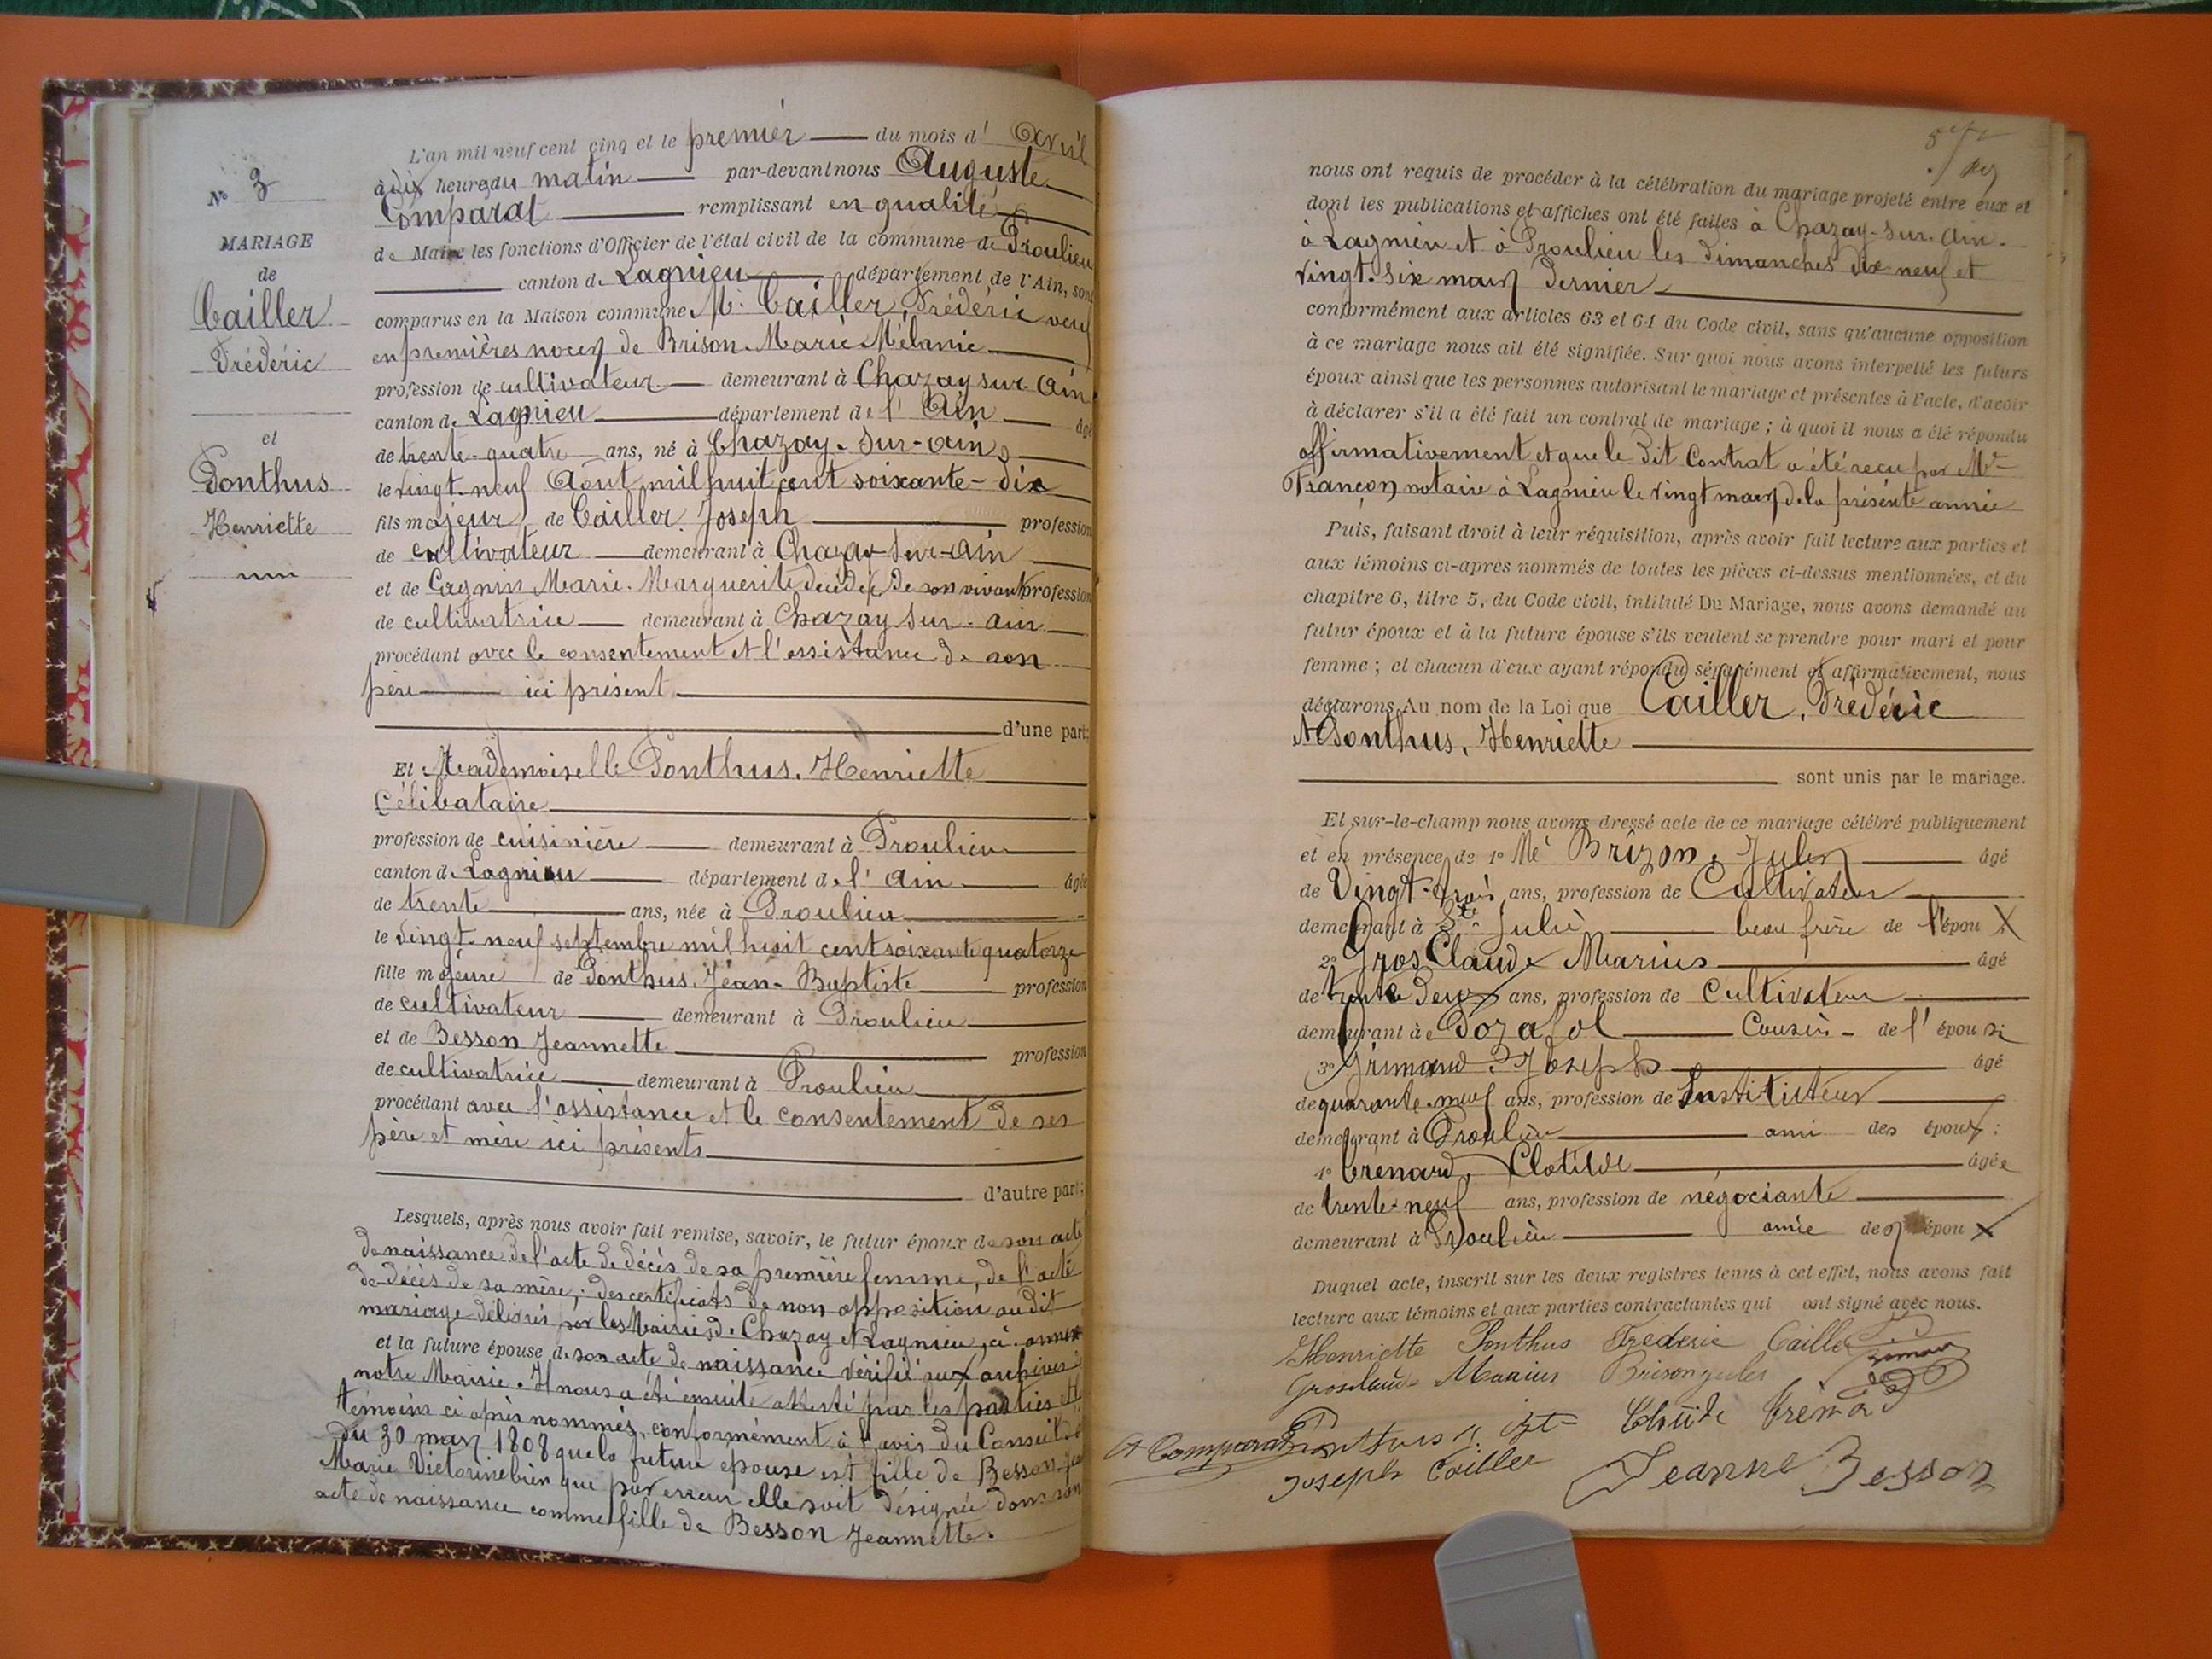 N° 3
MARIAGE
de
Cailler
Frédéric
et
Ponthus
Henriette
L'an mil neuf cent cinq et le premier du mois d' Avril
à dix heures du matin par-devant nous Auguste
Comparat remplissant en qualité
de Maire les fonctions d'Officier de l'état civil de la commune de Proulieu
canton de Lagnieu département de l'Ain, sont
comparus en la Maison commune M. Cailler, Frédéric veuf
en premières noces de Brison Marie Mélanie
profession de cultivateur demeurant à Chazay sur Ain
canton de Lagnieu département de l' Ain âgé
de trente-quatre ans, né à Chazay-sur-ain
le vingt-neuf Août mil huit cent soixante-dix
fils majeur de Cailler Joseph profession
de cultivateur demeurant à Chazay-sur-ain
et de Marie Marguerite décédée, de son vivant profession
de cultivatrice demeurant à Chazay sur ain
procédant avec le consentement et l'assistance de son
père ici présent
d'une part;
Et Mademoiselle Ponthus. Henriette
Célibataire
profession de cuisinière demeurant à Proulieu
canton de Lagnieu département de l' Ain âgée
de trente ans, née à Proulieu
le vingt-neuf septembre mil huit cent soixante quatorze
fille majeure de Ponthus, Jean-Baptiste profession
de cultivateur demeurant à Proulieu
et de Besson Jeannette profession
de cultivatrice demeurant à Proulieu
procédant avec l'assistance et le consentement de ses
père et mère ici présents
d'autre part;
Lesquels, après nous avoir fait remise, savoir, le futur époux de son acte
de naissance de l'acte de décès de sa première femme, de l'acte
de décès de sa mère, des certificats de non opposition au dit
mariage délivrés par les Mairies de Chazay et Lagnieu, ci-annexé
et la future épouse de son acte de naissance vérifié aux archives
notre Mairie. Il nous a été ensuite attesté par les parties et
témoins ci après nommés, conformément à l'avis du Conseil
du 30 mars 1808 que la future épouse est fille de Besson
Marie Victorine bien que par erreur elle soit désignée dans son
acte de naissance comme fille de Besson Jeannette.
nous ont requis de procéder à la célébration du mariage projeté entre eux et
dont les publications et affiches ont été faites à Chazay-sur-Ain.
à Lagnieu et à Proulieu les dimanches dix neuf et
vingt-six mars dernier
conformément aux articles 63 et 64 du Code civil, sans qu'aucune opposition
à ce mariage nous ait été signifiée. Sur quoi nous avons interpellé les futurs
époux ainsi que les personnes autorisant le mariage et présentes à l'acte, d'avoir
à déclarer s'il a été fait un contrat de mariage ; à quoi il nous a été répondu
affirmativement et que le dit Contrat a été reçu par Me
Françon notaire à Lagnieu le vingt mars de la présente année
Puis, faisant droit à leur réquisition, après avoir fait lecture aux parties et
aux témoins ci-après nommés de toutes les pièces ci-dessus mentionnées, et du
chapitre 6, titre 5, du Code civil, intitulé Du Mariage, nous avons demandé au
futur époux et à la future épouse s'ils veulent se prendre pour mari et pour
femme ; et chacun d'eux ayant répondu séparément et affirmativement, nous
déclarons Au nom de la Loi que Cailler, Frédéric
et Ponthus, Henriette
sont unis par le mariage.
Et sur-le-champ nous avons dressé acte de ce mariage célébré publiquement
et en présence de 1° Brizon, Jules âgé
de Vingt-trois ans, profession de Cultivateur
demeurant à Ste Julie beau frère de l'époux
2° Gros Claude Marius âgé
de trente deux ans, profession de Cultivateur
demeurant à Posafol Cousin de l' épouse
3° Grimaud Joseph âgé
de quarante-neuf ans, profession de Instituteur
demeurant à Proulieu ami des époux :
4° Trénard, Clotilde âgée
de trente-neuf ans, profession de négociante
demeurant à Proulieu amie des époux
Duquel acte, inscrit sur les deux registres tenus à cet effet, nous avons fait
lecture aux témoins et aux parties contractantes qui ont signé avec nous.
Henriette Ponthus Frederic Cailler
Grosclaude Marius Brison Jules
A Comparat Ponthus J. Bte Clotilde Trénard
Joseph Cailler Jeanne Besson